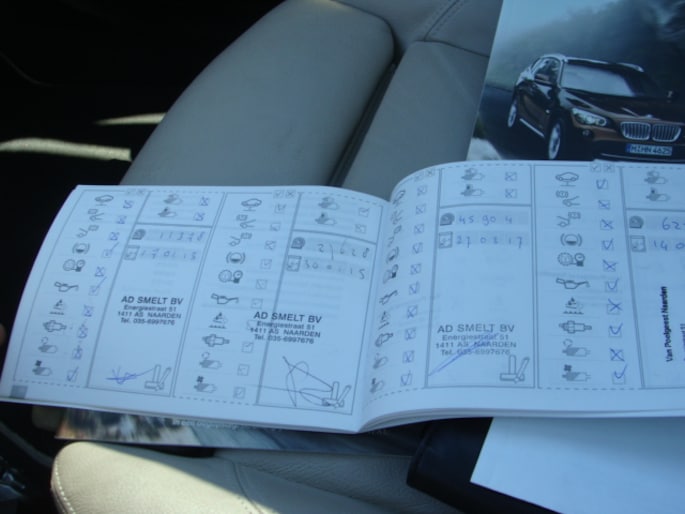 170113
AD SMELT BV
Energiestraat 51
1411 AS NAARDEN
Tel. 035-6997676
27628
300115
AD SMELT BV
Energiestraat 51
1411 AS NAARDEN
Tel. 035-6997676
45904
270317
AD SMELT BV
Energiestraat 51
1411 AS NAARDEN
Tel. 035-6997676
62
140
Van Poelgeest Naarden
M:HN 4625